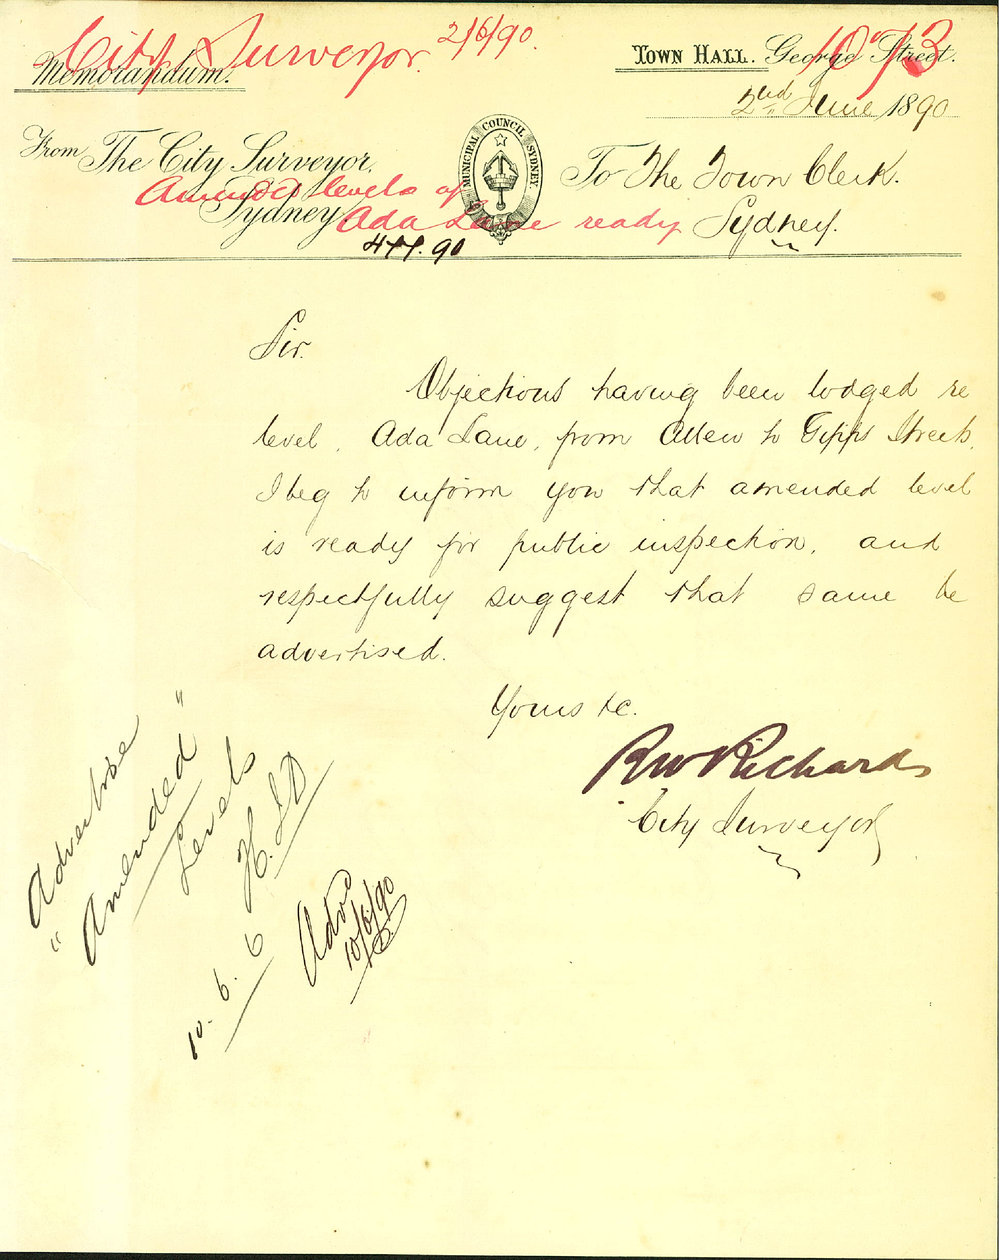 City Surveyor 2/6/90.
1073
Memorandum.
TOWN HALL. George Street.
2nd June 1890
MUNICIPAL COUNCIL SYDNEY
From The City Surveyor,
Sydney,
To The Town Clerk.
Sydney.
Amended levels of
Ada Lane ready
Sir.
Objections having been lodged re
level, Ada Lane, from Allen to Gipps Streets,
I beg to inform you that amended level
is ready for public inspection, and
respectfully suggest that same be
advertised.
Yours &c.
RW Richards
City Surveyor
Advertise
"Amended"
Levels
10.6.
Advd
10/6/90